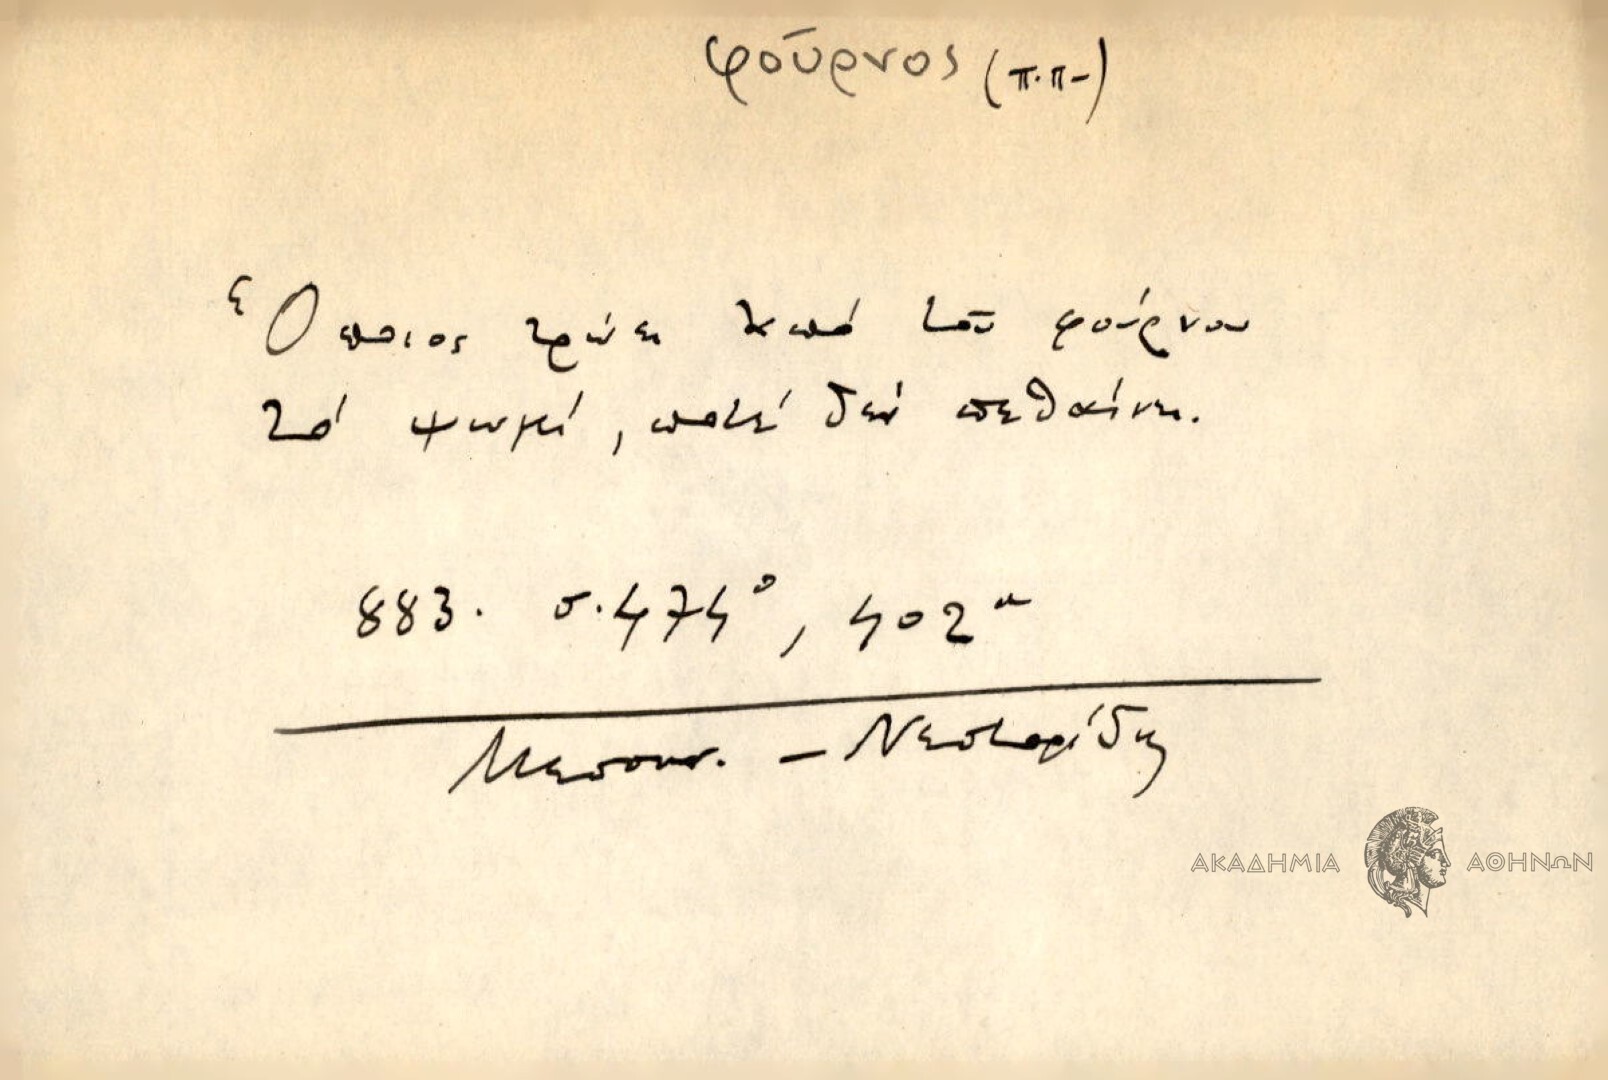 φοῦρνος (π.π-)
Ὅποιος τρώει ἀπό τοῦ φούρνου
τό ψωμί, ποτέ δέν πεθαίνει.
883. σ. 474, 402
Μεσσην. - Νεστορίδη
ΑΚΑΔΗΜΙΑ ΑΘΗΝΩΝ